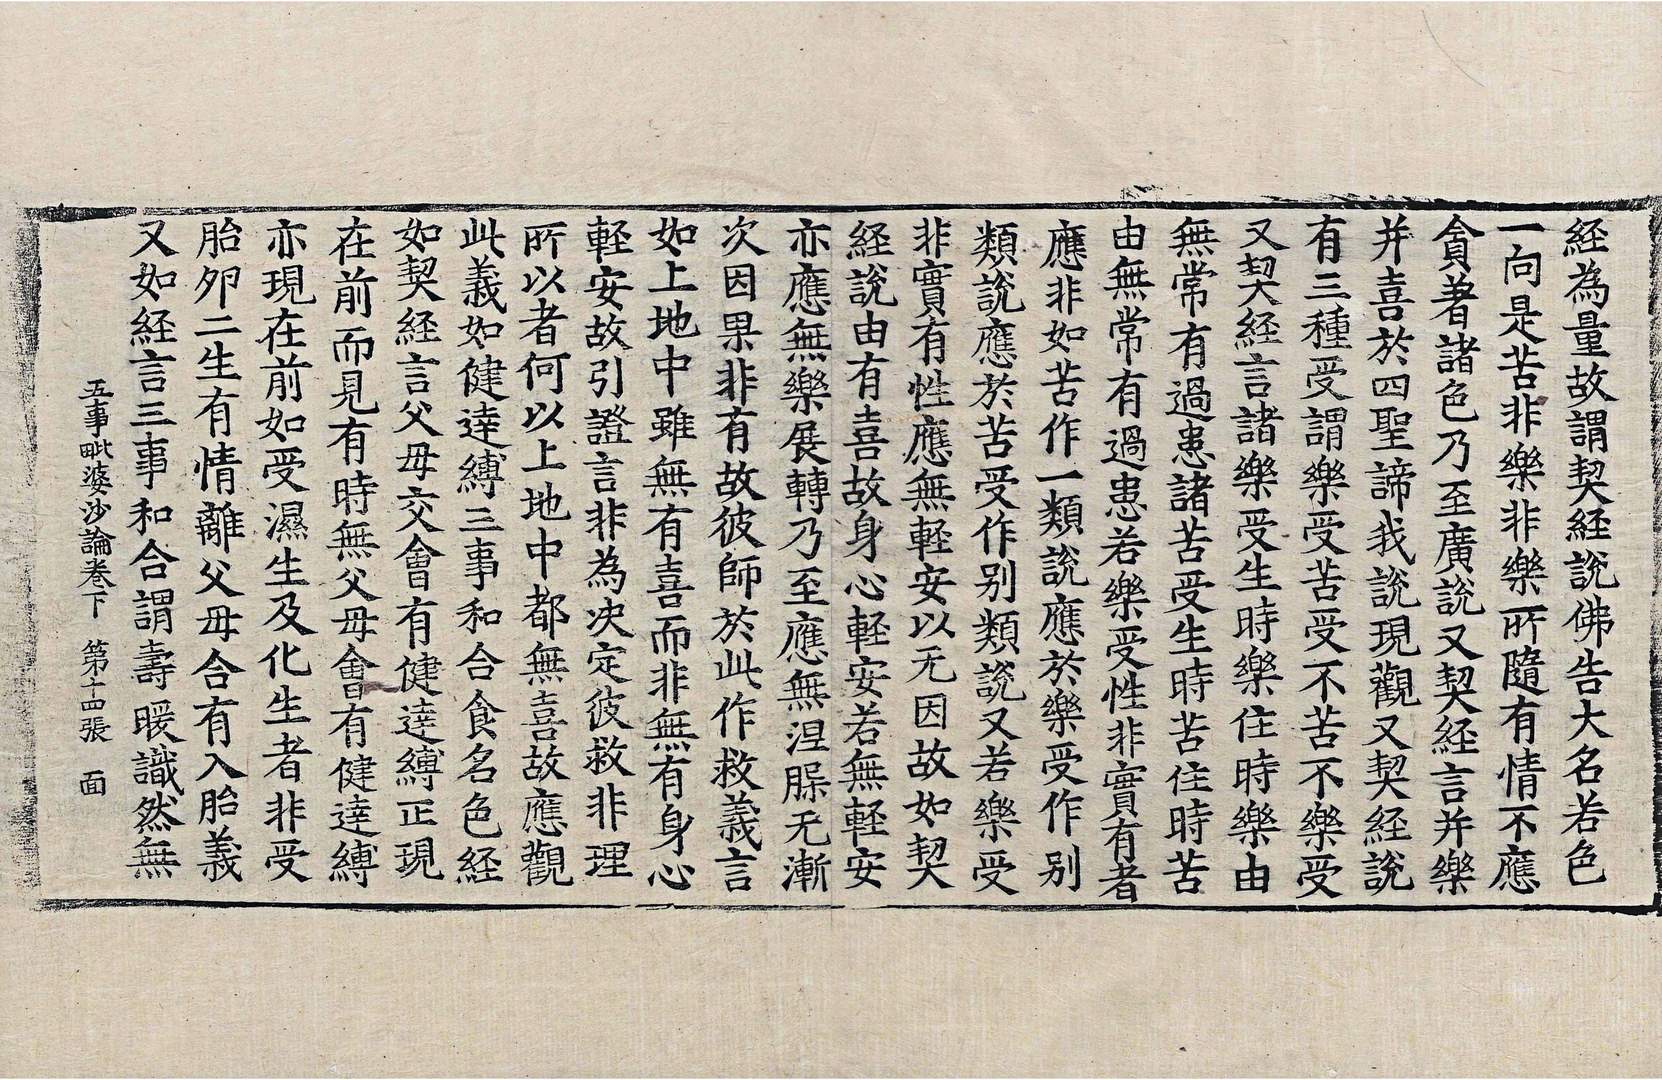 経為量故謂契経說佛告大名若色
一向是苦非樂非樂所隨有情不應
貪著諸色乃至廣說又契経言并樂
并喜於四聖諦我說現觀又契経說
有三種受謂樂受苦受不苦不樂受
又契経言諸樂受生時樂住時樂由
無常有過患諸苦受生時苦住時苦
由無常有過患若樂受性非實有者
應非如苦作一類說應於樂受作别
類說應於苦受作别類說又若樂受
非實有性應無軽安以无因故如契
経說由有喜故身心軽安若無軽安
亦應無樂展轉乃至應無涅脲无漸
次因果非有故彼師於此作救義言
如上地中雖無有喜而非無有身心
軽安故引證言非為决定彼救非理
所以者何以上地中都無喜故應觀
此義如健達縛三事和合食名色経
如契経言父母交會有健達縛正現
在前而見有時無父母會有健達縛
亦現在前如受濕生及化生者非受
胎夘二生有情離父母合有入胎義
又如経言三事和合謂壽暖識然無
五事毗婆沙論卷下 第十四張 面